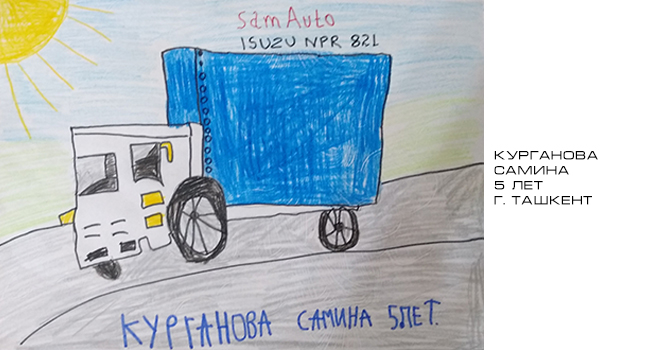 samAuto
ISUZU NPR 821
КУРГАНОВА САМИНА 5ЛЕТ.
КУРГАНОВА
САМИНА
5 ЛЕТ
Г. ТАШКЕНТ